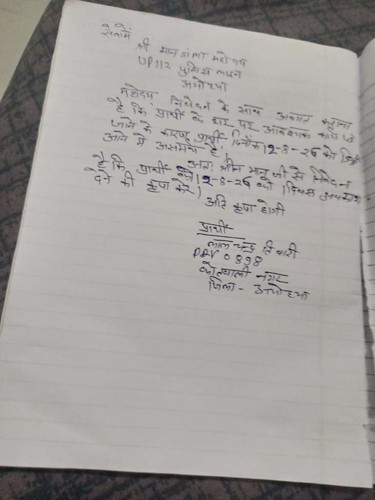 सेवामें
श्री मान प्रभारी महोदय
UP112 पुलिस लाइन
अयोध्या
महोदय निवेदन के साथ अवगत कराना
है कि प्रार्थी के घर पर आवश्यक कार्य पड़
जाने के कारण प्रार्थी दिनांक 12-8-26 को
आने में असमर्थ है।
अतः श्रीमान जी से निवेदन
है कि प्रार्थी को 12-8-26 को अवकाश
देने की कृपा करें।
अति कृपा होगी
प्रार्थी
लाल चन्द्र तिवारी
PRV 0898
कोतवाली नगर
जिला - अयोध्या